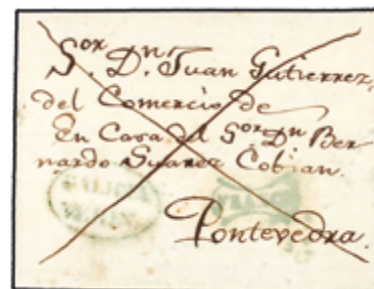 Sor. Dn. Juan Gutierrez,
del Comercio de
En Casa del Sor. Dn Ber-
nardo Suarez Cobian.
Pontevedra.